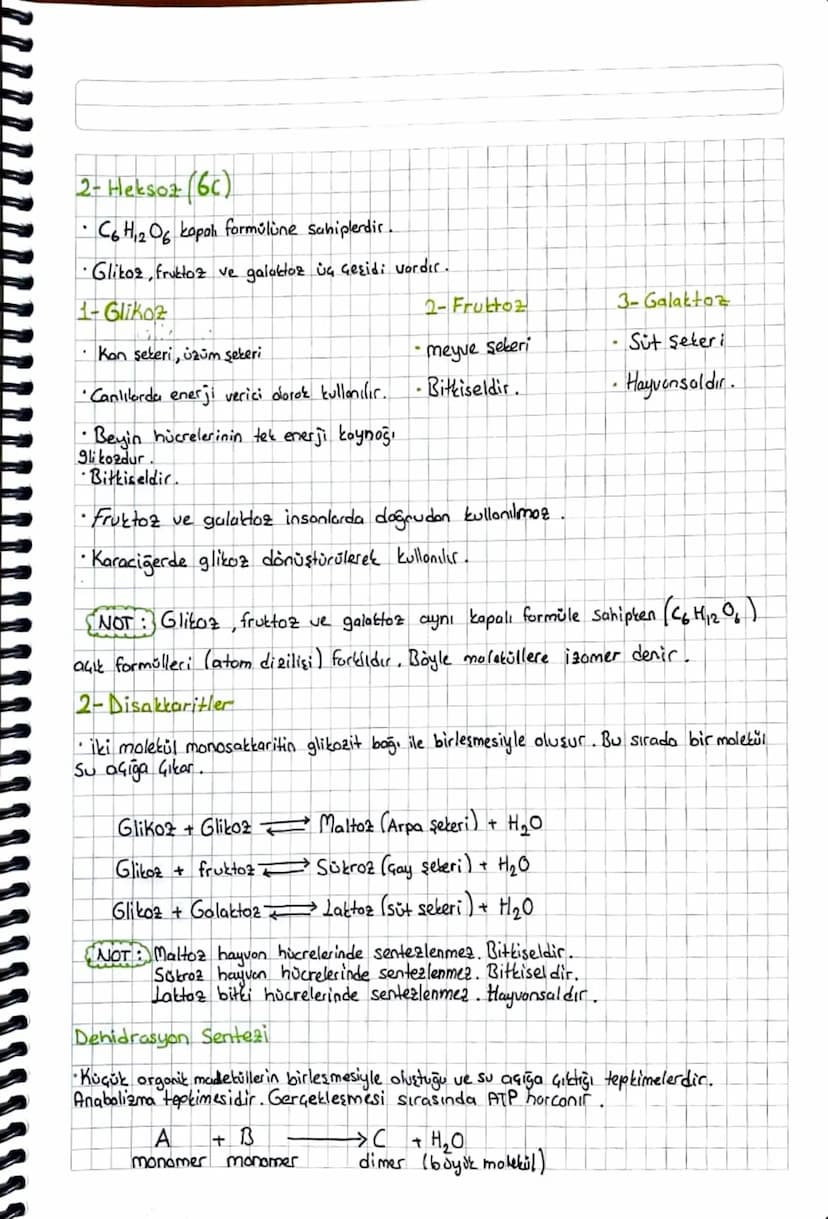 2- Heksoz (6C)
· C6H12O6 kapalı formülüne sahiplerdir.
· Glikoz, fruktoz ve galaktoz üç çeşidi vardır.
1- Glikoz
· Kan şekeri, üzüm şekeri
· Canlılarda enerji verici olarak kullanılır.
· Beyin hücrelerinin tek enerji kaynağı
glikozdur.
· Bitkiseldir.
2- Fruktoz
· meyve şekeri
· Bitkiseldir.
3- Galaktoz
· Süt şekeri
· Hayvansaldır.
· Fruktoz ve galaktoz insanlarda doğrudan kullanılmaz.
· Karaciğerde glikoz dönüştürülerek kullanılır.
NOT: Glikoz, fruktoz ve galaktoz aynı kapalı formüle sahipken (C6H12O6)
açık formülleri (atom dizilişi) farklıdır. Böyle moleküllere izomer denir.
2- Disakkaritler
· iki molekül monosakkaritin glikozit bağı ile birleşmesiyle oluşur. Bu sırada bir molekül
su açığa çıkar.
Glikoz + Glikoz ⇌ Maltoz (Arpa şekeri) + H2O
Glikoz + fruktoz ⇌ Sükroz (Çay şekeri) + H2O
Glikoz + Galaktoz ⇌ Laktoz (süt şekeri) + H2O
NOT: Maltoz hayvan hücrelerinde sentezlenmez. Bitkiseldir.
Sükroz hayvan hücrelerinde sentezlenmez. Bitkiseldir.
Laktoz bitki hücrelerinde sentezlenmez. Hayvansaldır.
Dehidrasyon Sentezi
· Küçük organik moleküllerin birleşmesiyle oluştuğu ve su açığa çıktığı tepkimelerdir.
Anabolizma tepkimesidir. Gerçekleşmesi sırasında ATP harcanır.
A + B → C + H2O
monomer monomer dimer (büyük molekül)